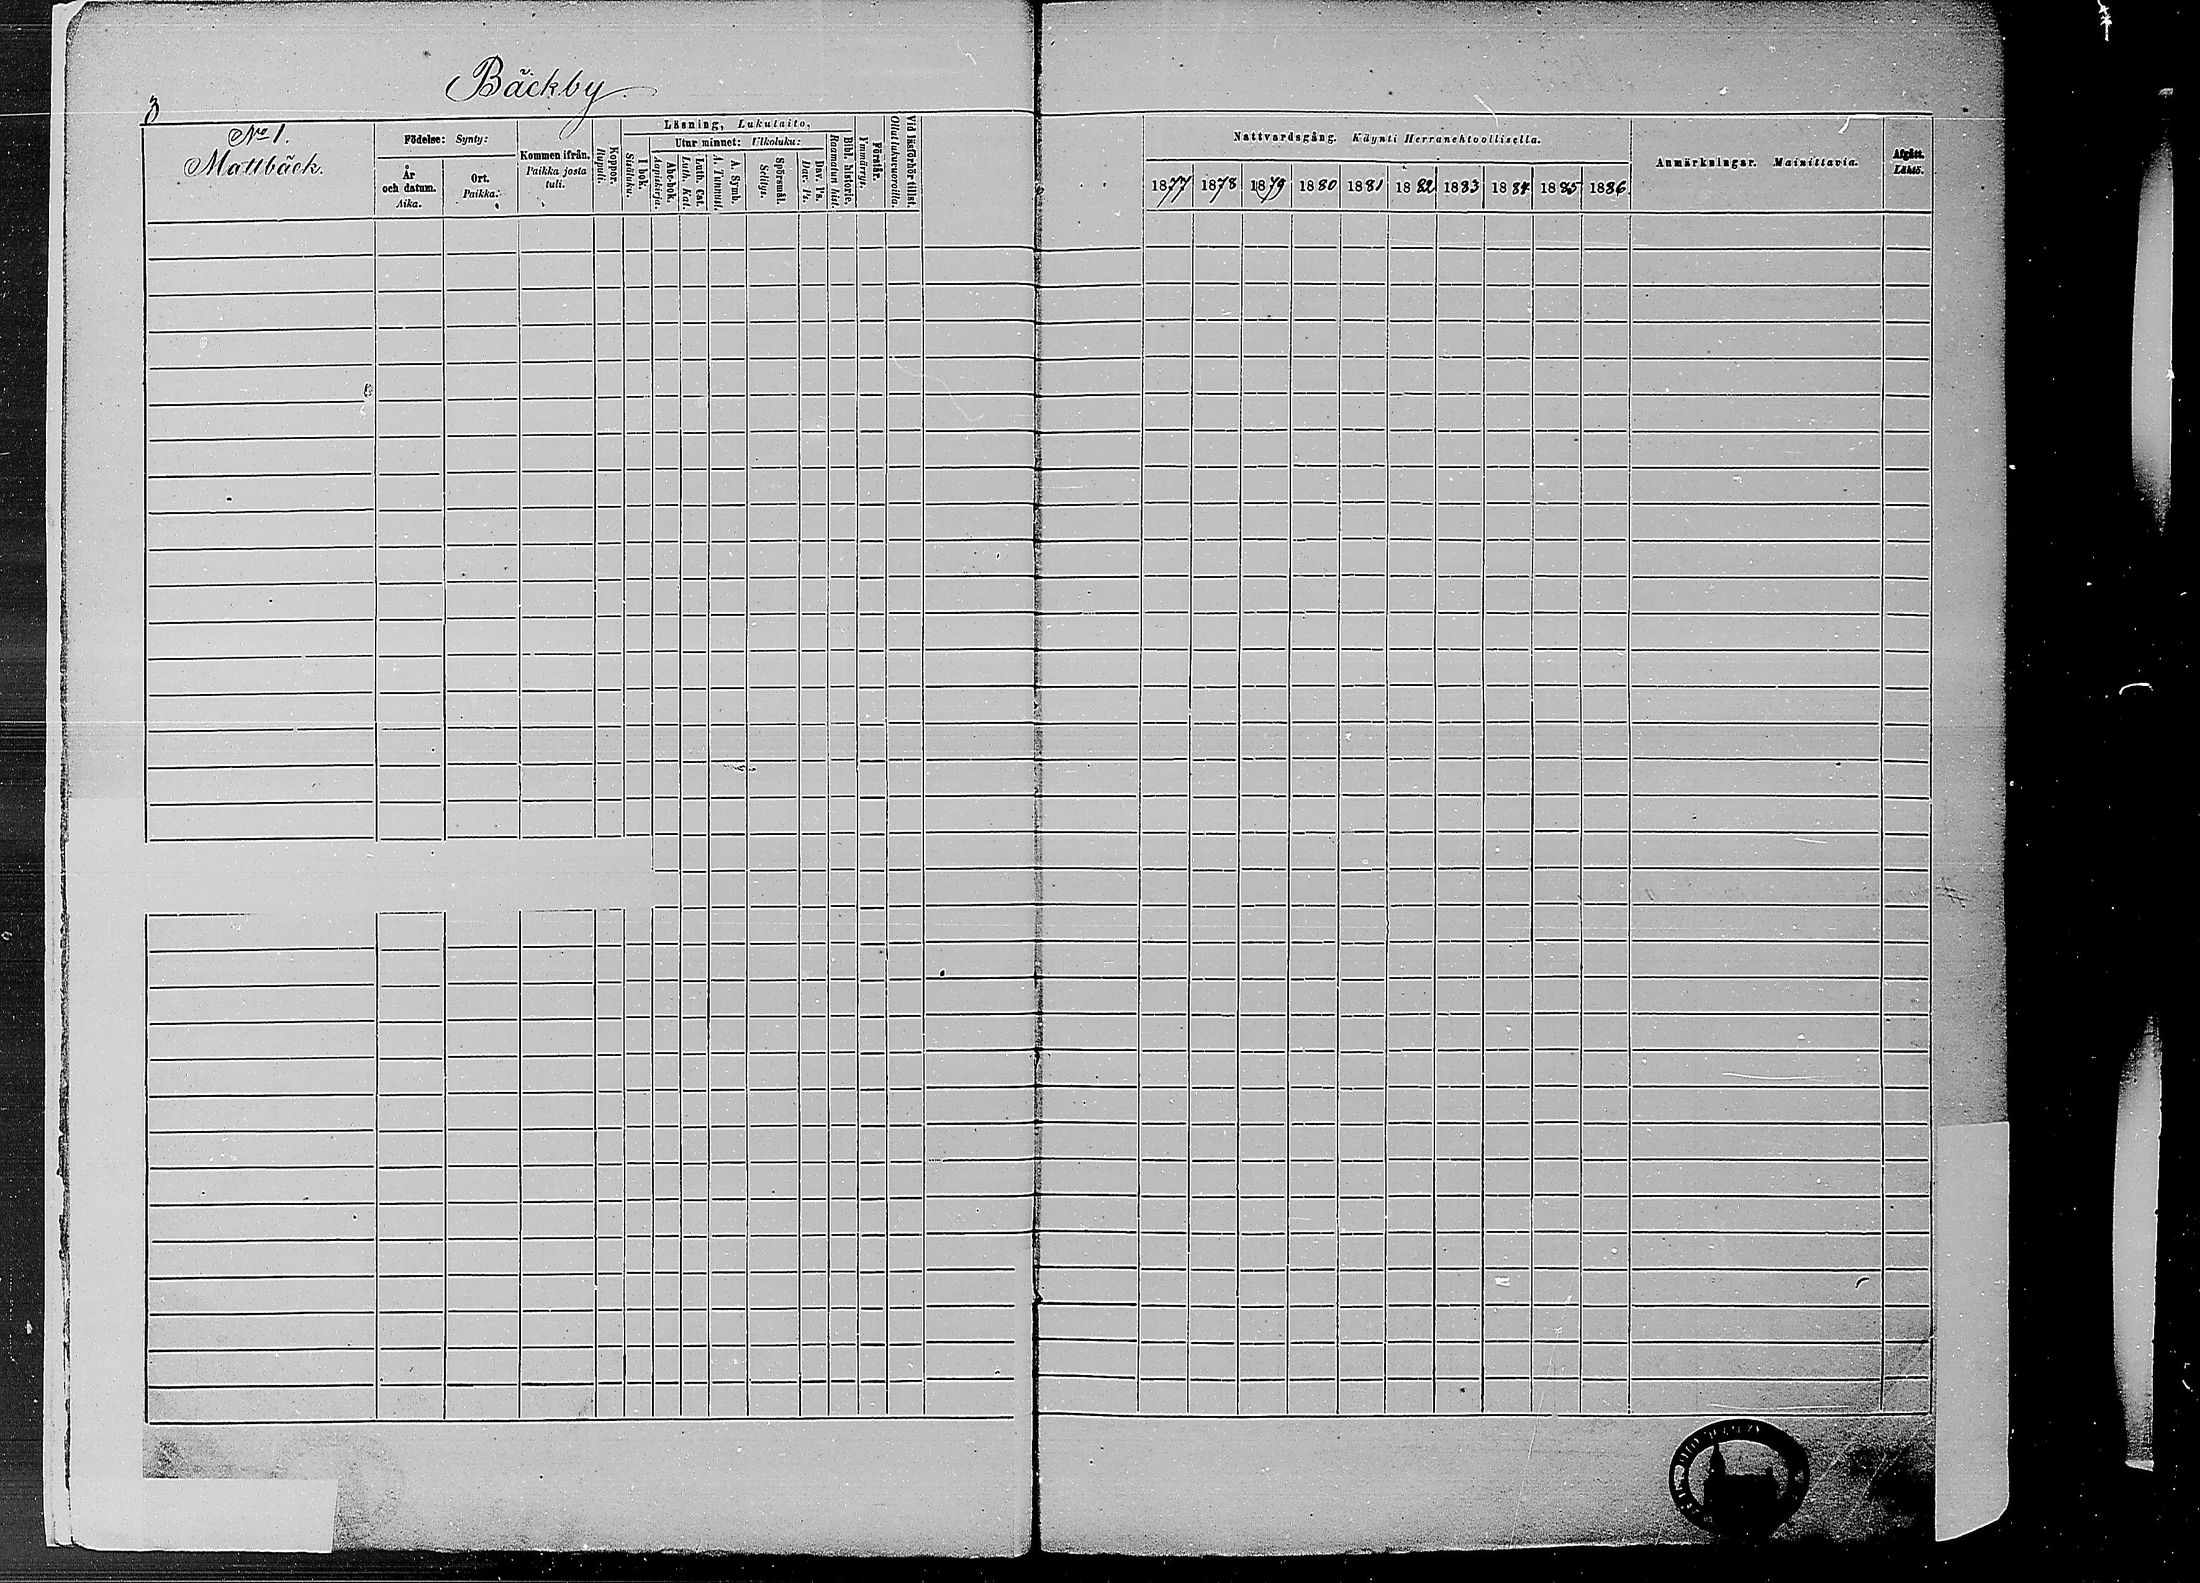 Bäckby.
3
No 1.
Mattbäck.
Födelse: Synty:
År och datum. Aika.
Ort. Paikka.
Kommen ifrån. Paikka josta tuli.
Koppor. Rupuli.
Läsning, Lukutaito.
I bok. Sisäluku.
Utur minnet: Ulkoluku:
Abc-bok. Aapiskirja.
Luth. Cat. Luth. Kat.
A. Symb. A. Tunnust.
Spörsmål. Selitys.
Dav. Ps. Dav. Ps.
Bibl. historie. Raamatun hist.
Förstår. Ymmärrys.
Vid läsförhör tillst. Ollut lukuvuoroilla.
Nattvardsgång. Käynti Herranehtoollisella.
1877 1878 1879 1880 1881 1882 1883 1884 1885 1886
Anmärkningar. Mainittavia.
Afgått. Lähtö.